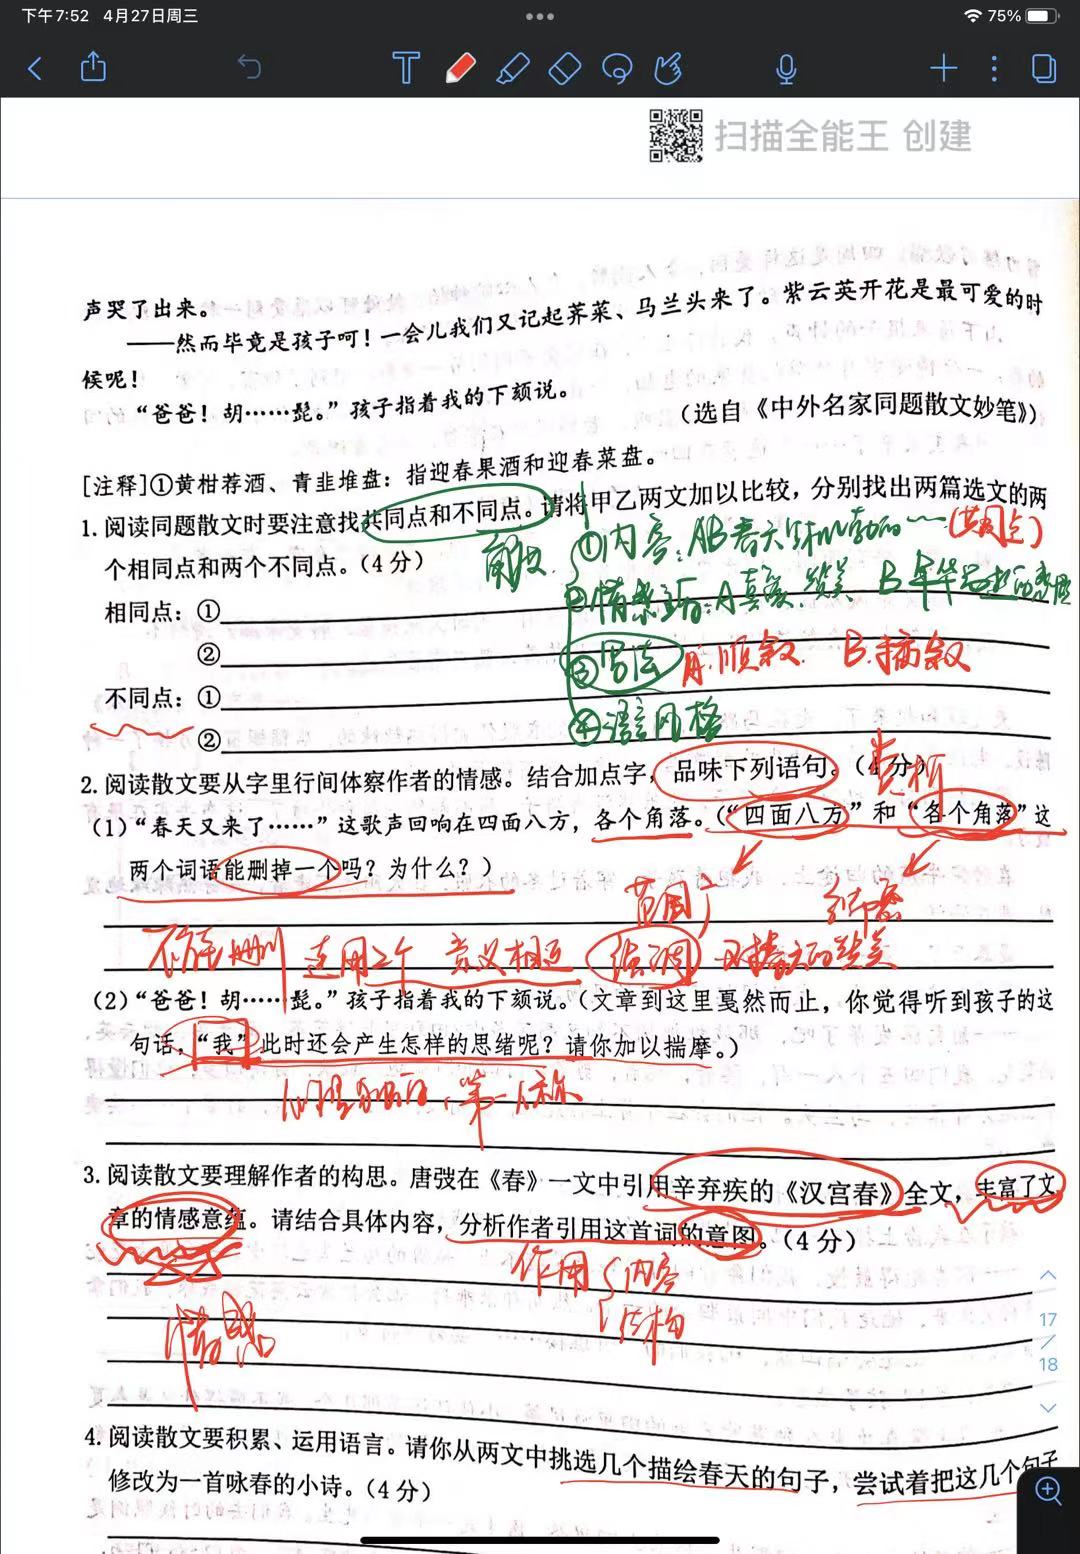 下午7:52 4月27日周三
75%
扫描全能王 创建
声哭了出来。
——然而毕竟是孩子呵！一会儿我们又记起荠菜、马兰头来了。紫云英开花是最可爱的时
候呢！
“爸爸！胡……髭。”孩子指着我的下颏说。
（选自《中外名家同题散文妙笔》）
[注释]①黄柑荐酒、青韭堆盘：指迎春果酒和迎春菜盘。
1. 阅读同题散文时要注意找共同点和不同点。请将甲乙两文加以比较，分别找出两篇选文的两
个相同点和两个不同点。（4分）
①内容：AB春天生机勃勃 （共同点）
相同点：①
②情感主旨：A喜爱 赞美 B
②
③写法 A.顺叙 B.插叙
不同点：①
④语言风格
②
2. 阅读散文要从字里行间体察作者的情感。结合加点字，品味下列语句。（4分）
赏析
（1）“春天又来了……”这歌声回响在四面八方，各个角落。（“四面八方”和“各个角落”这
两个词语能删掉一个吗？为什么？）
范围广
不能删 连用2个 意义相近 强调 对春天的赞美
（2）“爸爸！胡……髭。”孩子指着我的下颏说。（文章到这里戛然而止，你觉得听到孩子的这
句话，“我”此时还会产生怎样的思绪呢？请你加以揣摩。）
心理 第一人称
3. 阅读散文要理解作者的构思。唐弢在《春》一文中引用辛弃疾的《汉宫春》全文，丰富了文
章的情感意蕴。请结合具体内容，分析作者引用这首词的意图。（4分）
作用 内容
结构
情感
17
/
18
4. 阅读散文要积累、运用语言。请你从两文中挑选几个描绘春天的句子，尝试着把这几个句子
修改为一首咏春的小诗。（4分）